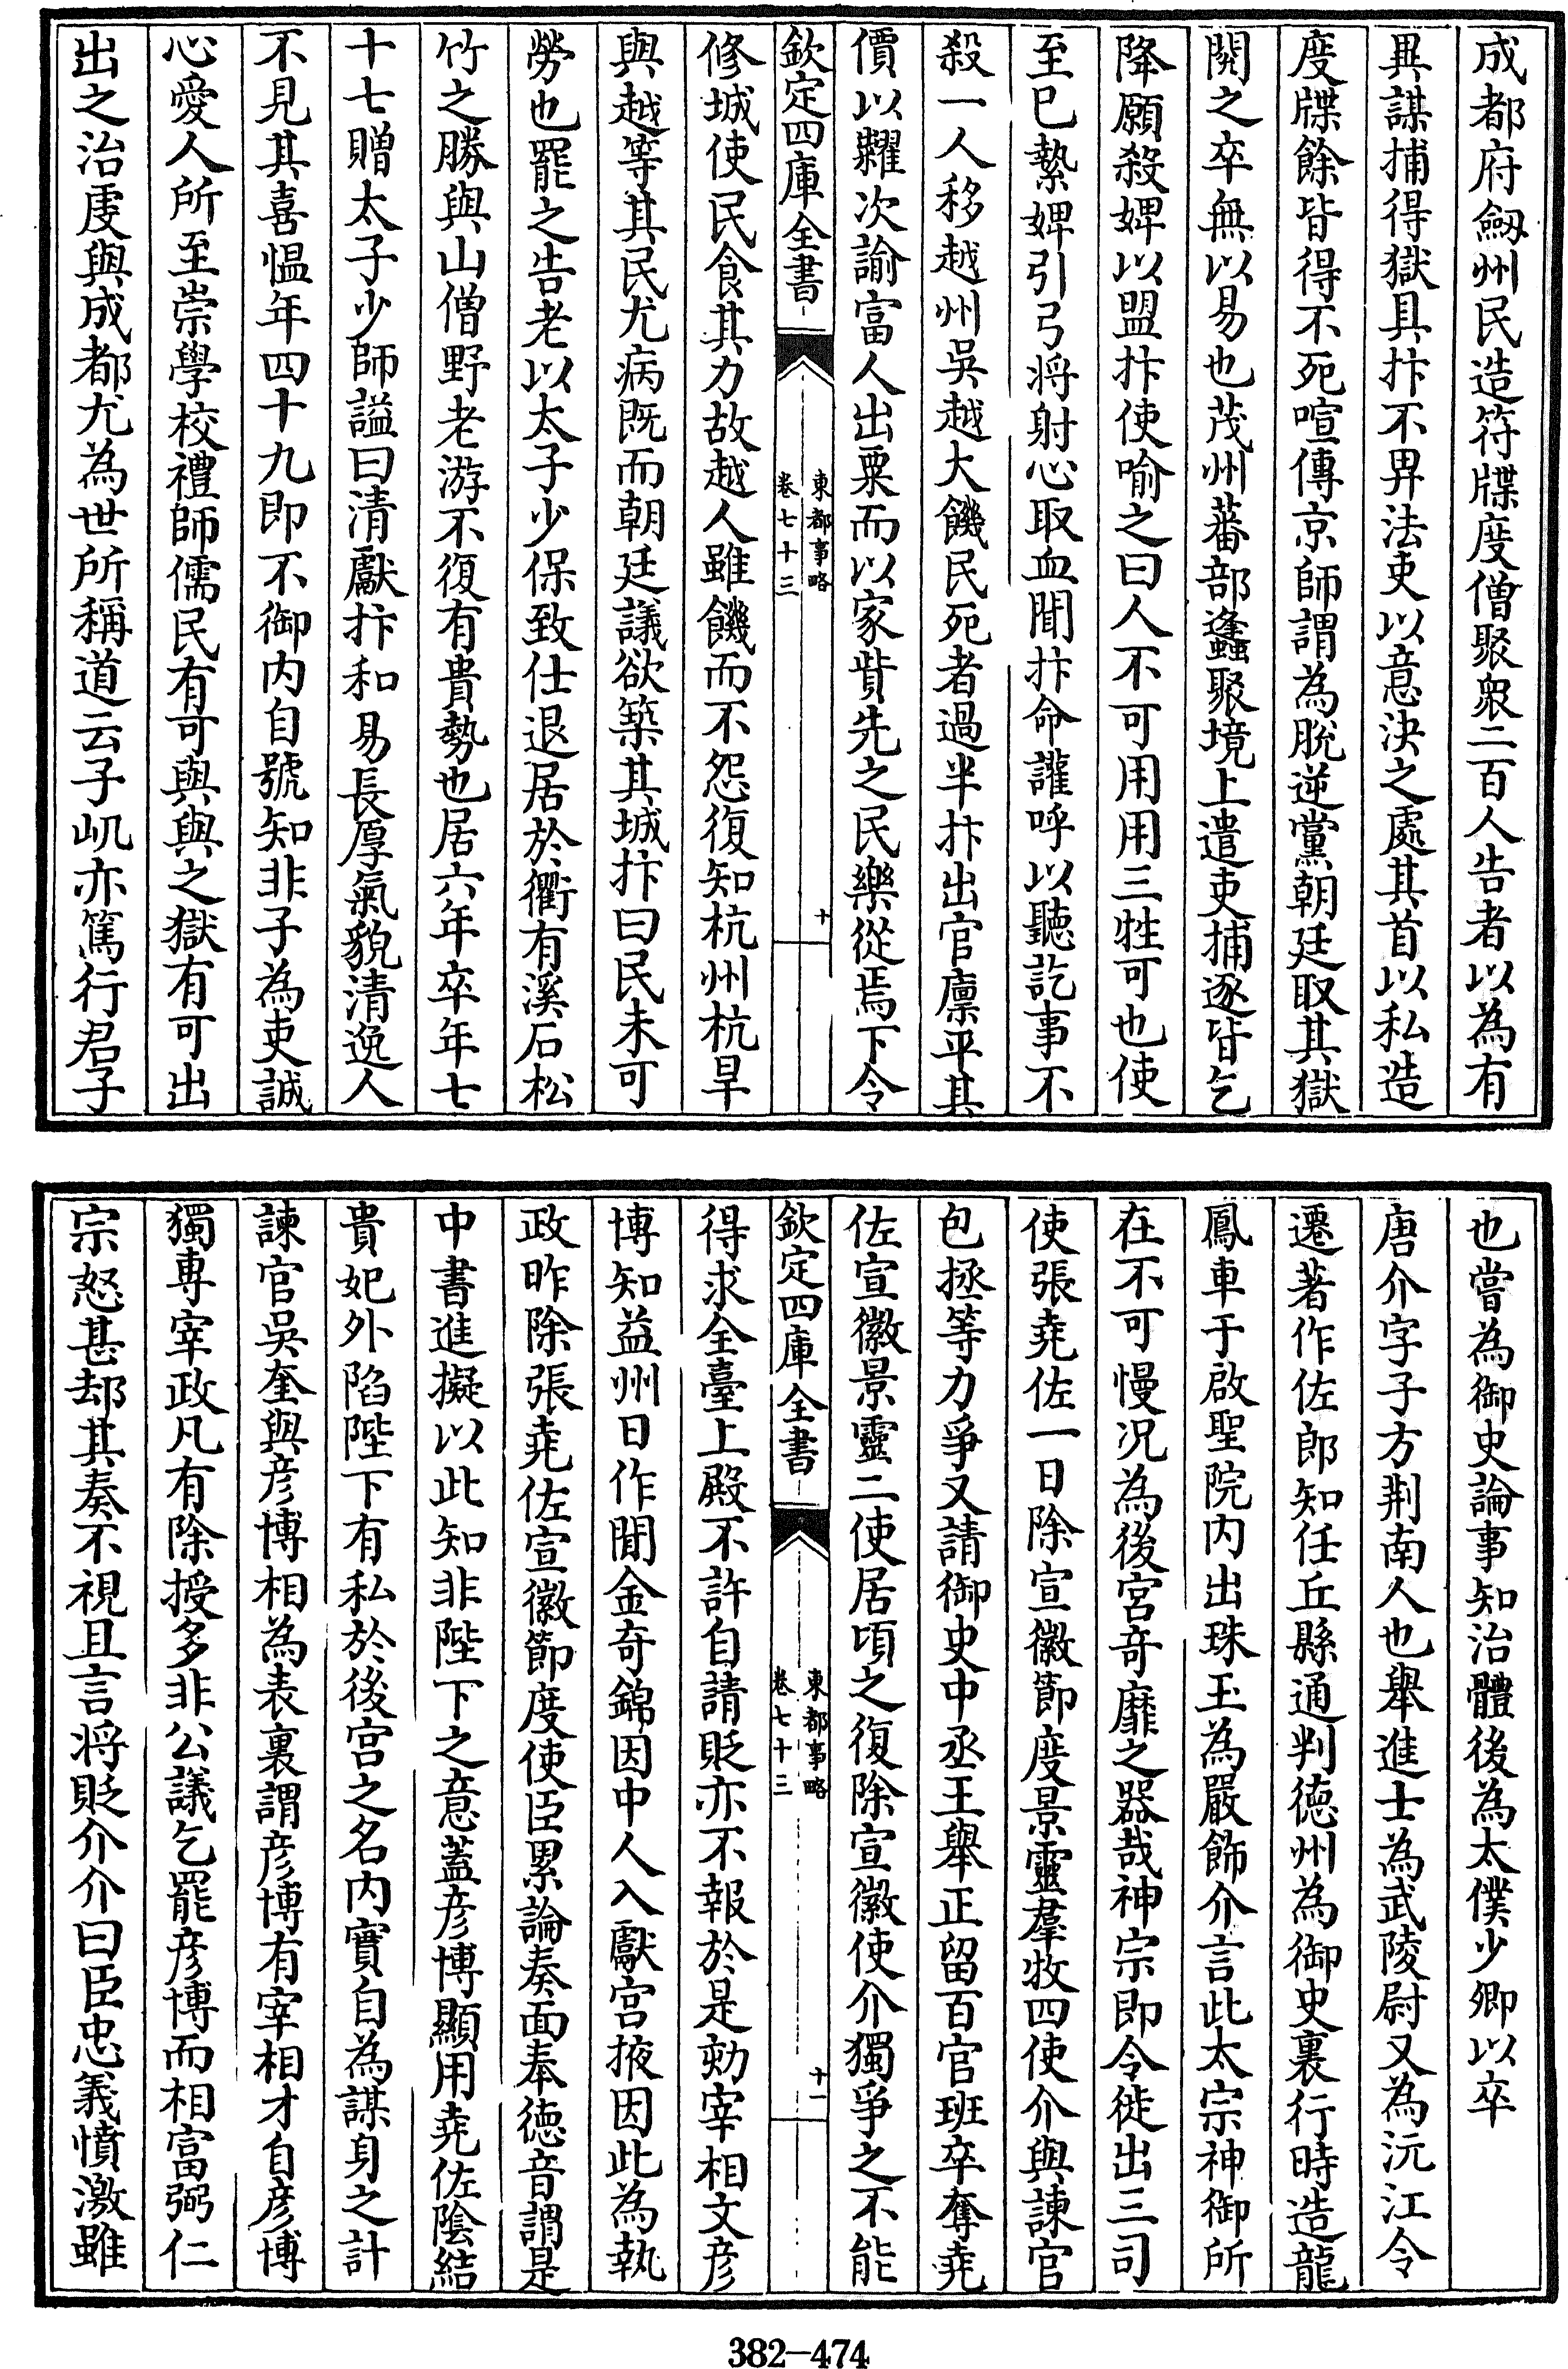 成都府劔州民造符牒度僧聚衆二百人告者以為有
異謀捕得獄具抃不畀法吏以意決之處其首以私造
度牒餘皆得不死喧傳京師謂為脫逆黨朝廷取其獄
閱之卒無以易也茂州蕃部蠭聚境上遣吏捕逐皆乞
降願殺婢以盟抃使喻之曰人不可用用三牲可也使
至已縶婢引弓將射心取血聞抃命讙呼以聽訖事不
殺一人移越州吳越大饑民死者過半抃出官廩平其
價以糶次諭富人出粟而以家貲先之民樂從焉下令
欽定四庫全書
東都事略
卷七十三
十
修城使民食其力故越人雖饑而不怨復知杭州杭旱
與越等其民尤病既而朝廷議欲築其城抃曰民未可
勞也罷之告老以太子少保致仕退居於衢有溪石松
竹之勝與山僧野老游不復有貴勢也居六年卒年七
十七贈太子少師謚曰清獻抃和易長厚氣貌清逸人
不見其喜愠年四十九即不御内自號知非子為吏誠
心愛人所至崇學校禮師儒民有可與與之獄有可出
出之治虔與成都尤為世所稱道云子㞦亦篤行君子
也嘗為御史論事知治體後為太僕少卿以卒
唐介字子方荆南人也舉進士為武陵尉又為沅江令
遷著作佐郎知任丘縣通判德州為御史裏行時造龍
鳳車于啟聖院内出珠玉為嚴飾介言此太宗神御所
在不可慢况為後宮奇靡之器哉神宗即令徙出三司
使張堯佐一日除宣徽節度景靈羣牧四使介與諫官
包拯等力爭又請御史中丞王舉正留百官班卒奪堯
佐宣徽景靈二使居頃之復除宣徽使介獨爭之不能
欽定四庫全書
東都事略
卷七十三
十一
得求全臺上殿不許自請貶亦不報於是劾宰相文彦
博知益州日作閒金奇錦因中人入獻宮掖因此為執
政昨除張堯佐宣徽節度使臣累論奏面奉德音謂是
中書進擬以此知非陛下之意蓋彦博顯用堯佐陰結
貴妃外陷陛下有私於後宮之名内實自為謀身之計
諫官吳奎與彦博相為表裏謂彦博有宰相才自彦博
獨専宰政凡有除授多非公議乞罷彦博而相富弼仁
宗怒甚却其奏不視且言將貶介介曰臣忠義憤激雖
382—474